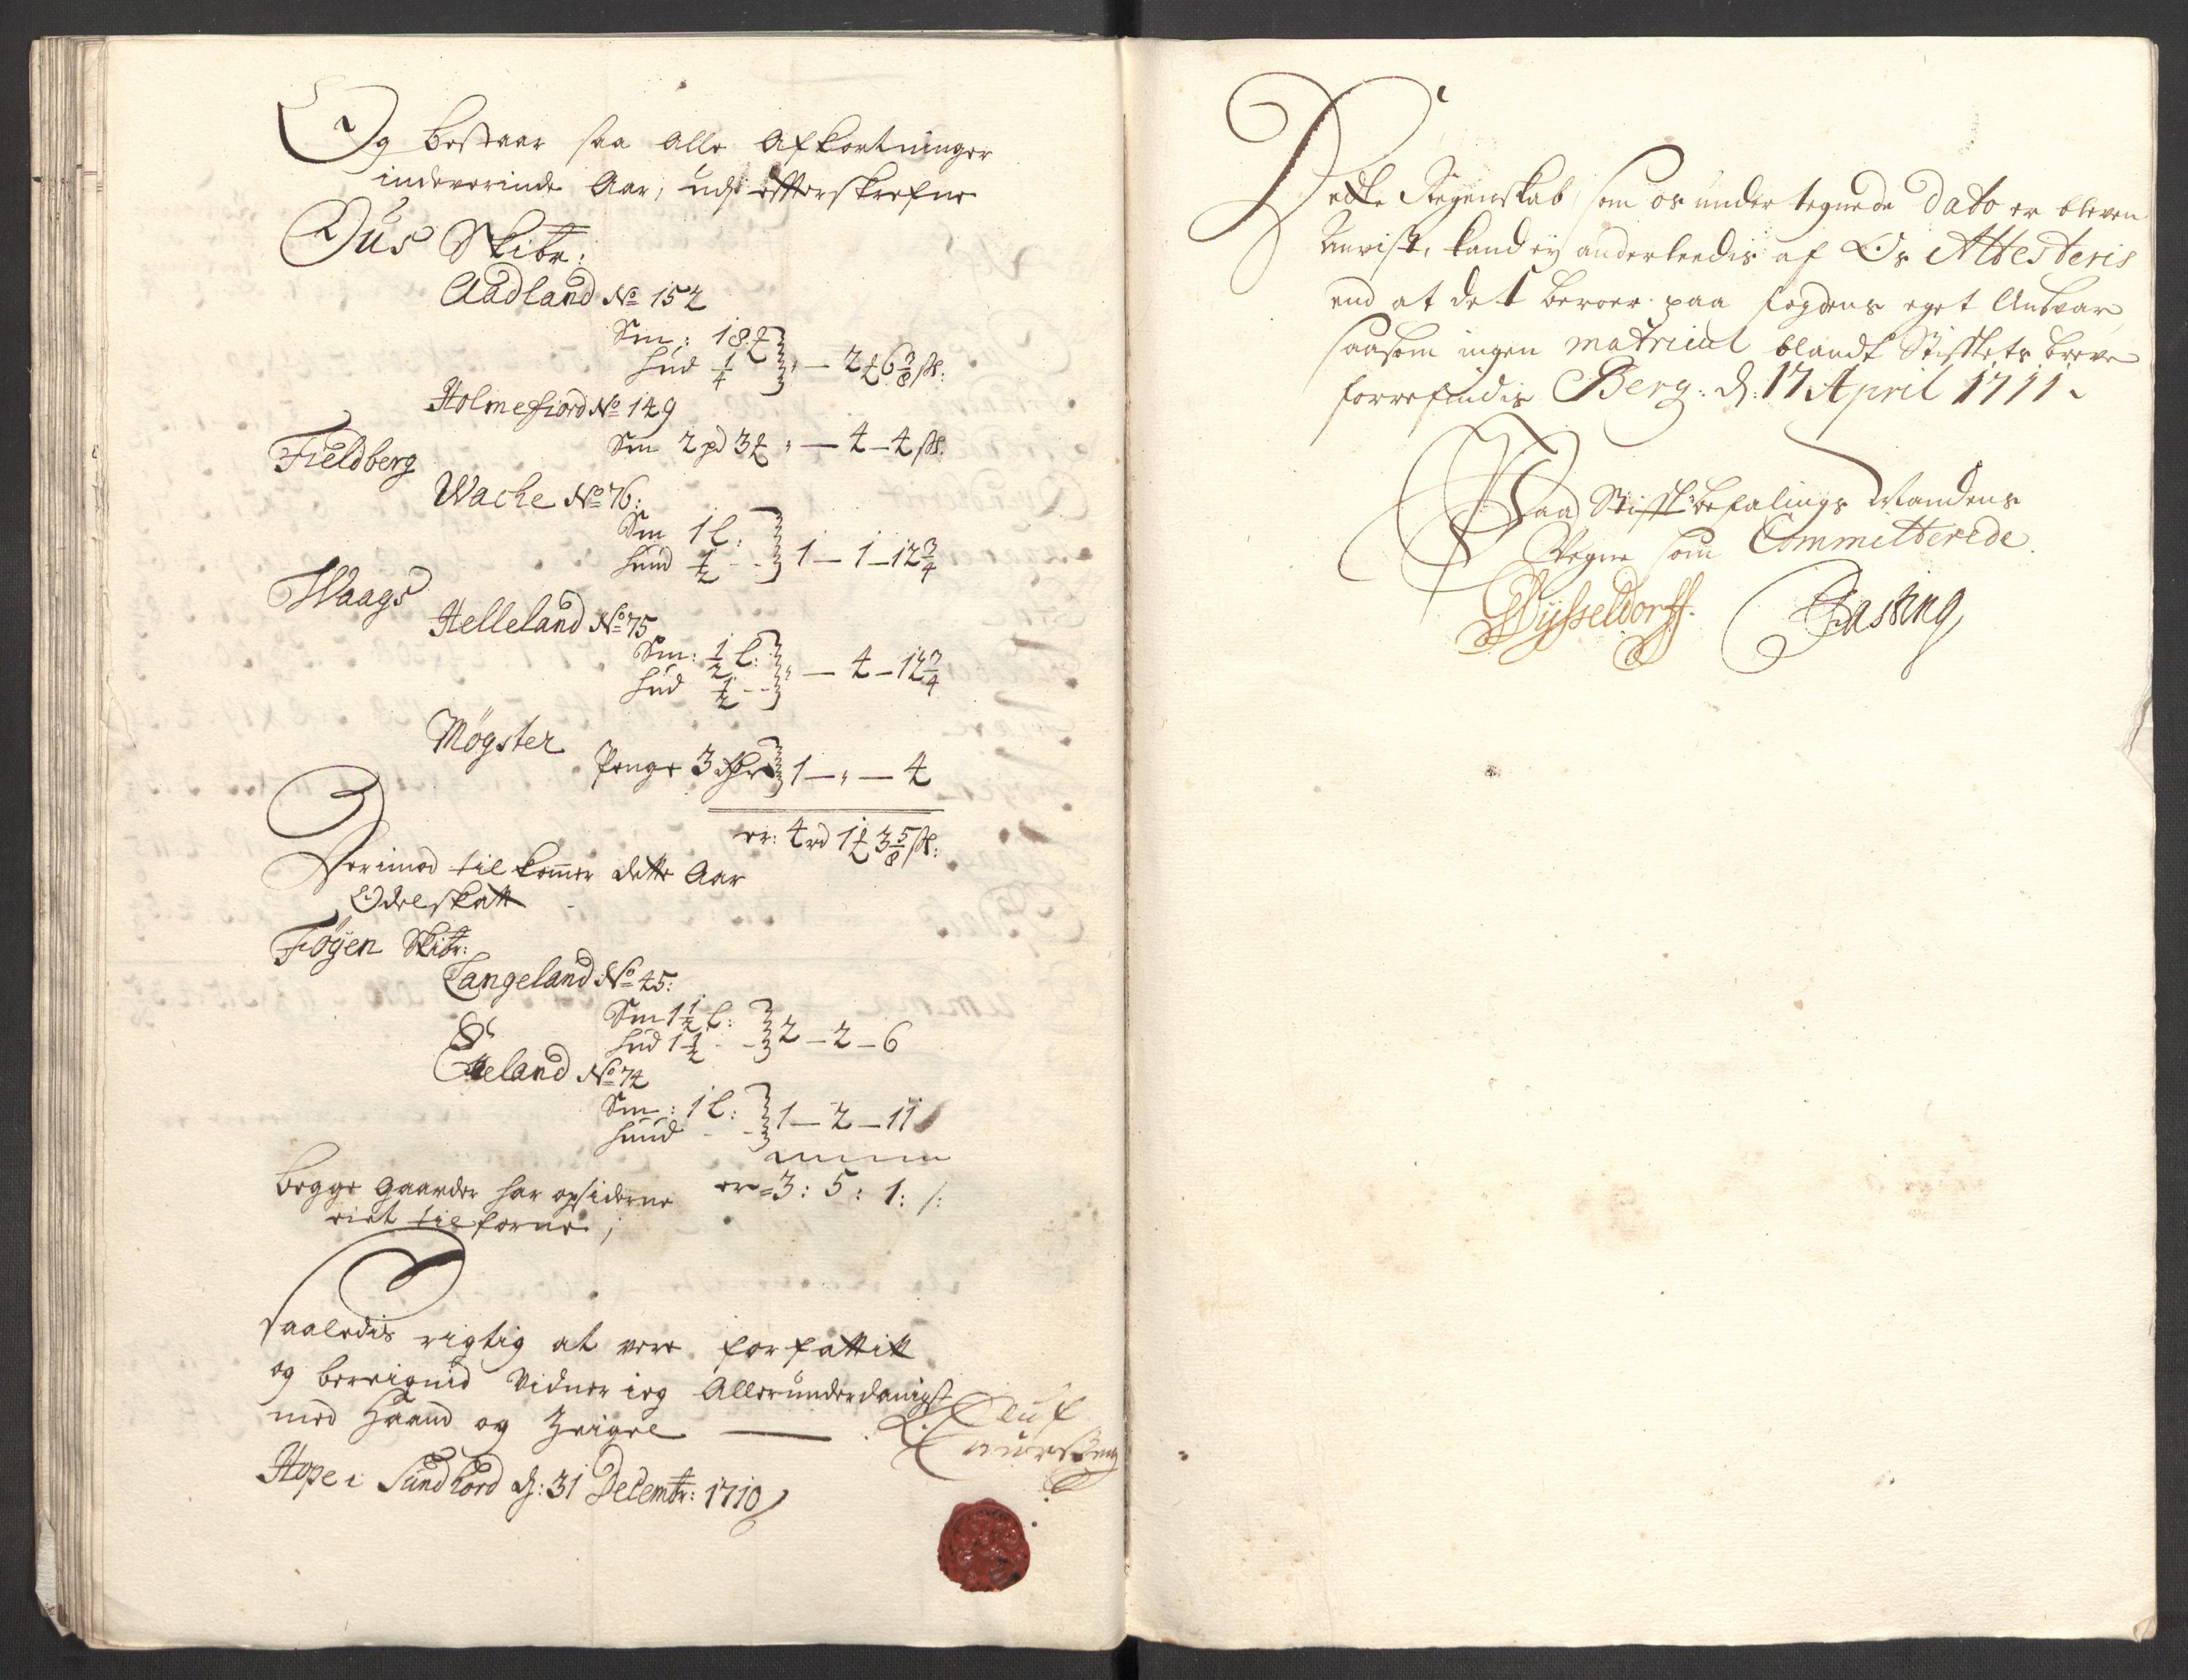 Og bestaar saa alle Afkortninger
indeverinde Aar, udj effterskrefne
Ous Skibr:
Aadland No 152
Sm: 18 ℔
Hud 1/4 " — 2 ℔ 6 3/8 sk:
Holmefiord No 149
Sm 2 pd 3 ℔ " — 4 — 4 sk.
Fieldberg
Wache No 76:
Sm 1 l:
Huud 1/2 - - 1 — 1 — 12 3/4
Waags
Helleland No 75
Sm: 1/2 l:
Hud 1/2 - - " — 4 — 12 3/4
Møgster
Penge 3 1 — " — 4
er: 4 rd 1 ℔ 3 5/8 sk:
Derimod tilkommer dette Aar
Odelskatt
Føyen Skibr:
Langeland No 45:
Sm 1 1/2 l:
Hud 1 1/2 - - 2 — 2 — 6
&
Aeland No 74
Sm: 1 l:
Huud - - 1 — 2 — 11
er = 3: 5: 1: /:
begge Gaarder har opsiderne
eiet tilforne;
Saaledis rigtig at vere forfattitt
og bereignid Vidner ieg Allerunderdanigst
med Haand og Zeigel —
Oluf
Laurssen
Hope i Sundhord d: 31 Decembr: 1710
Dette Regenskab, som os undertegnede Dato er bleven
Anvist, kand ey anderleedis af Os Attesteris
end at det beroer paa fogdens eget Ansvar
saasom ingen matricul blandt Stifftets breve
forrefindis Berg: d: 17 April 1711.
Paa Stifftbefalings Mandens
Vegne som Committerede.
Wysseldorff. Fasting